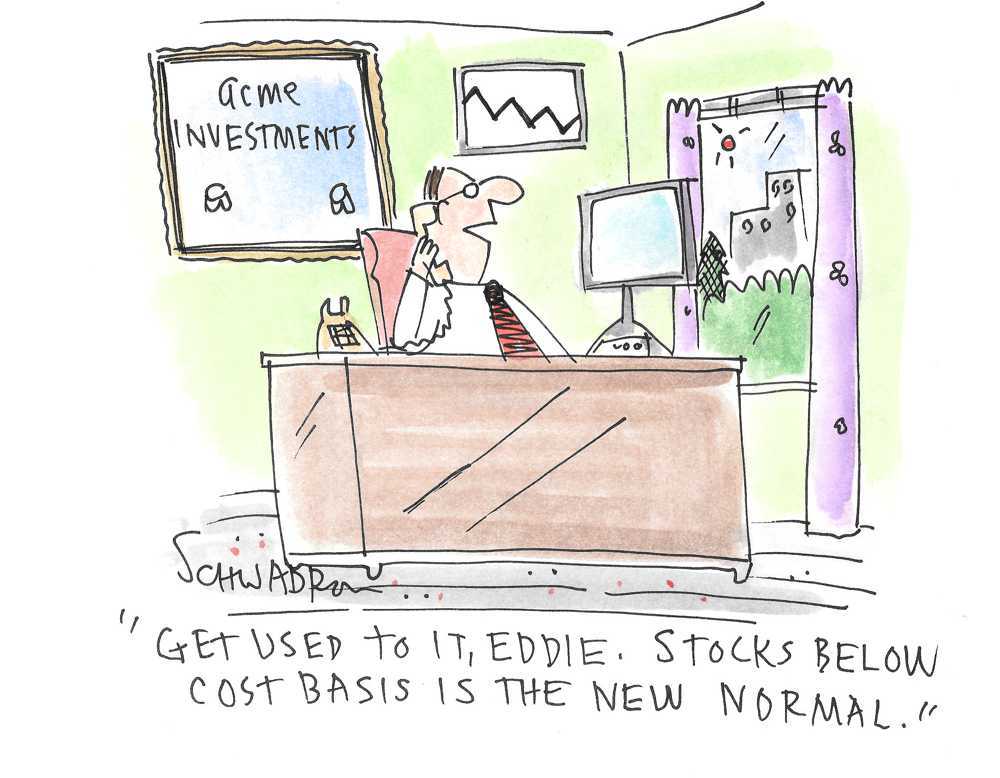 acme
INVESTMENTS
SCHWADRON
"GET USED TO IT, EDDIE. STOCKS BELOW
COST BASIS IS THE NEW NORMAL."